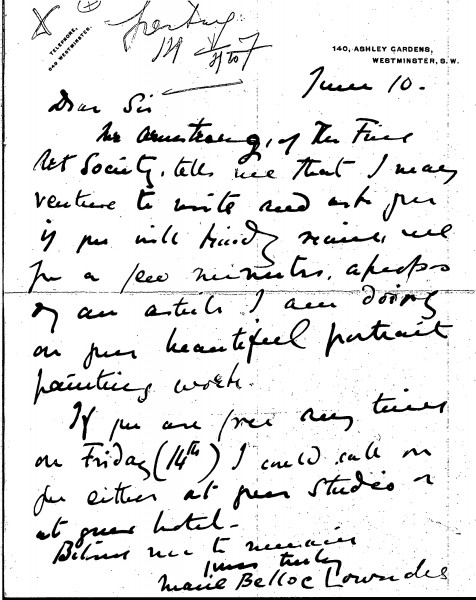 TELEPHONE,
WESTMINSTER.
140, ASHLEY GARDENS,
WESTMINSTER, S.W.
June 10.
Dear Sir
Mr Armstrong, of the Fine
Art Society, tells me that I may
venture to write and ask you
if you will kindly receive me
for a few minutes, apropos
of an article I am doing
on your beautiful portrait
painting work.
If you are free any time
on Friday (14th) I could call on
you either at your studio or
at your hotel.
Believe me to remain
yours truly
Marie Belloc Lowndes